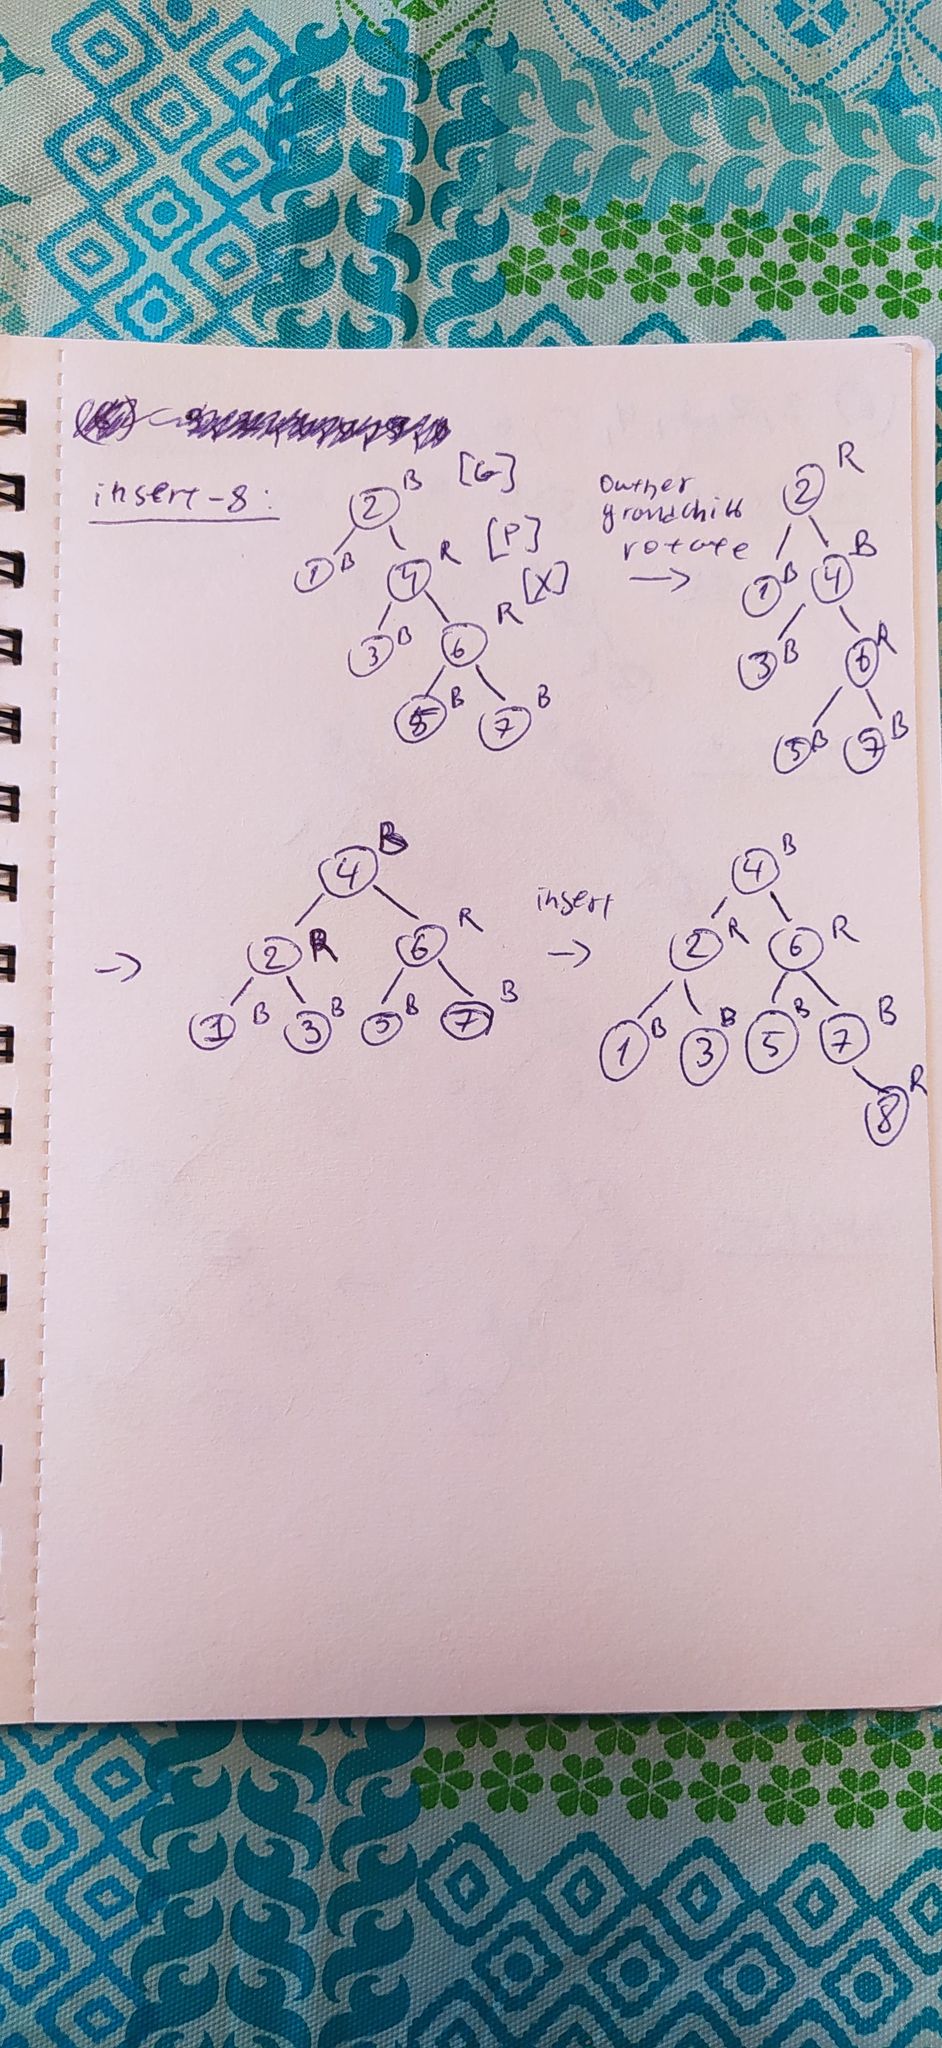 insert-8:
2 B [G]
1 B
4 R [P]
3 B
6 R [X]
5 B
7 B
Outher
grandchild
rotate
→
2 R
1 B
4 B
3 B
6 R
5 B
7 B
→
4 B
2 R
6 R
1 B
3 B
5 B
7 B
insert
→
4 B
2 R
6 R
1 B
3 B
5 B
7 B
8 R